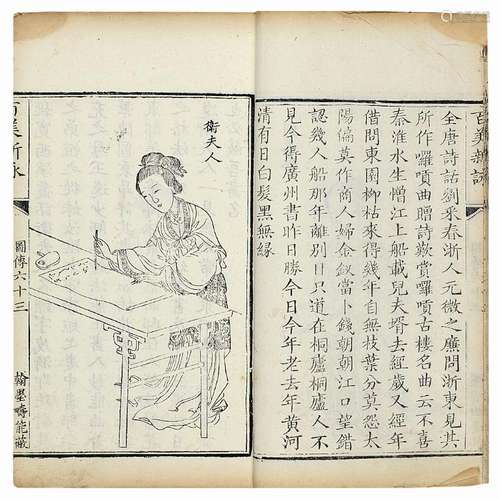 百美新詠
全唐詩話劉采春浙人元微之廉問浙東見其
所作囉嗊曲贈詩歎賞囉嗊古樓名曲云不喜
秦淮水生憎江上船載兒夫壻去經歲又經年
借問東園柳枯來得幾年自無枝葉分莫怨太
陽偏莫作商人婦金釵當卜錢朝朝江口望錯
認幾人船那年離別日只道在桐廬桐廬人不
見今得廣州書昨日勝今日今年老去年黃河
清有日白髮黑無緣
衛夫人
百美新詠
圖傳六十三
翰墨能藏